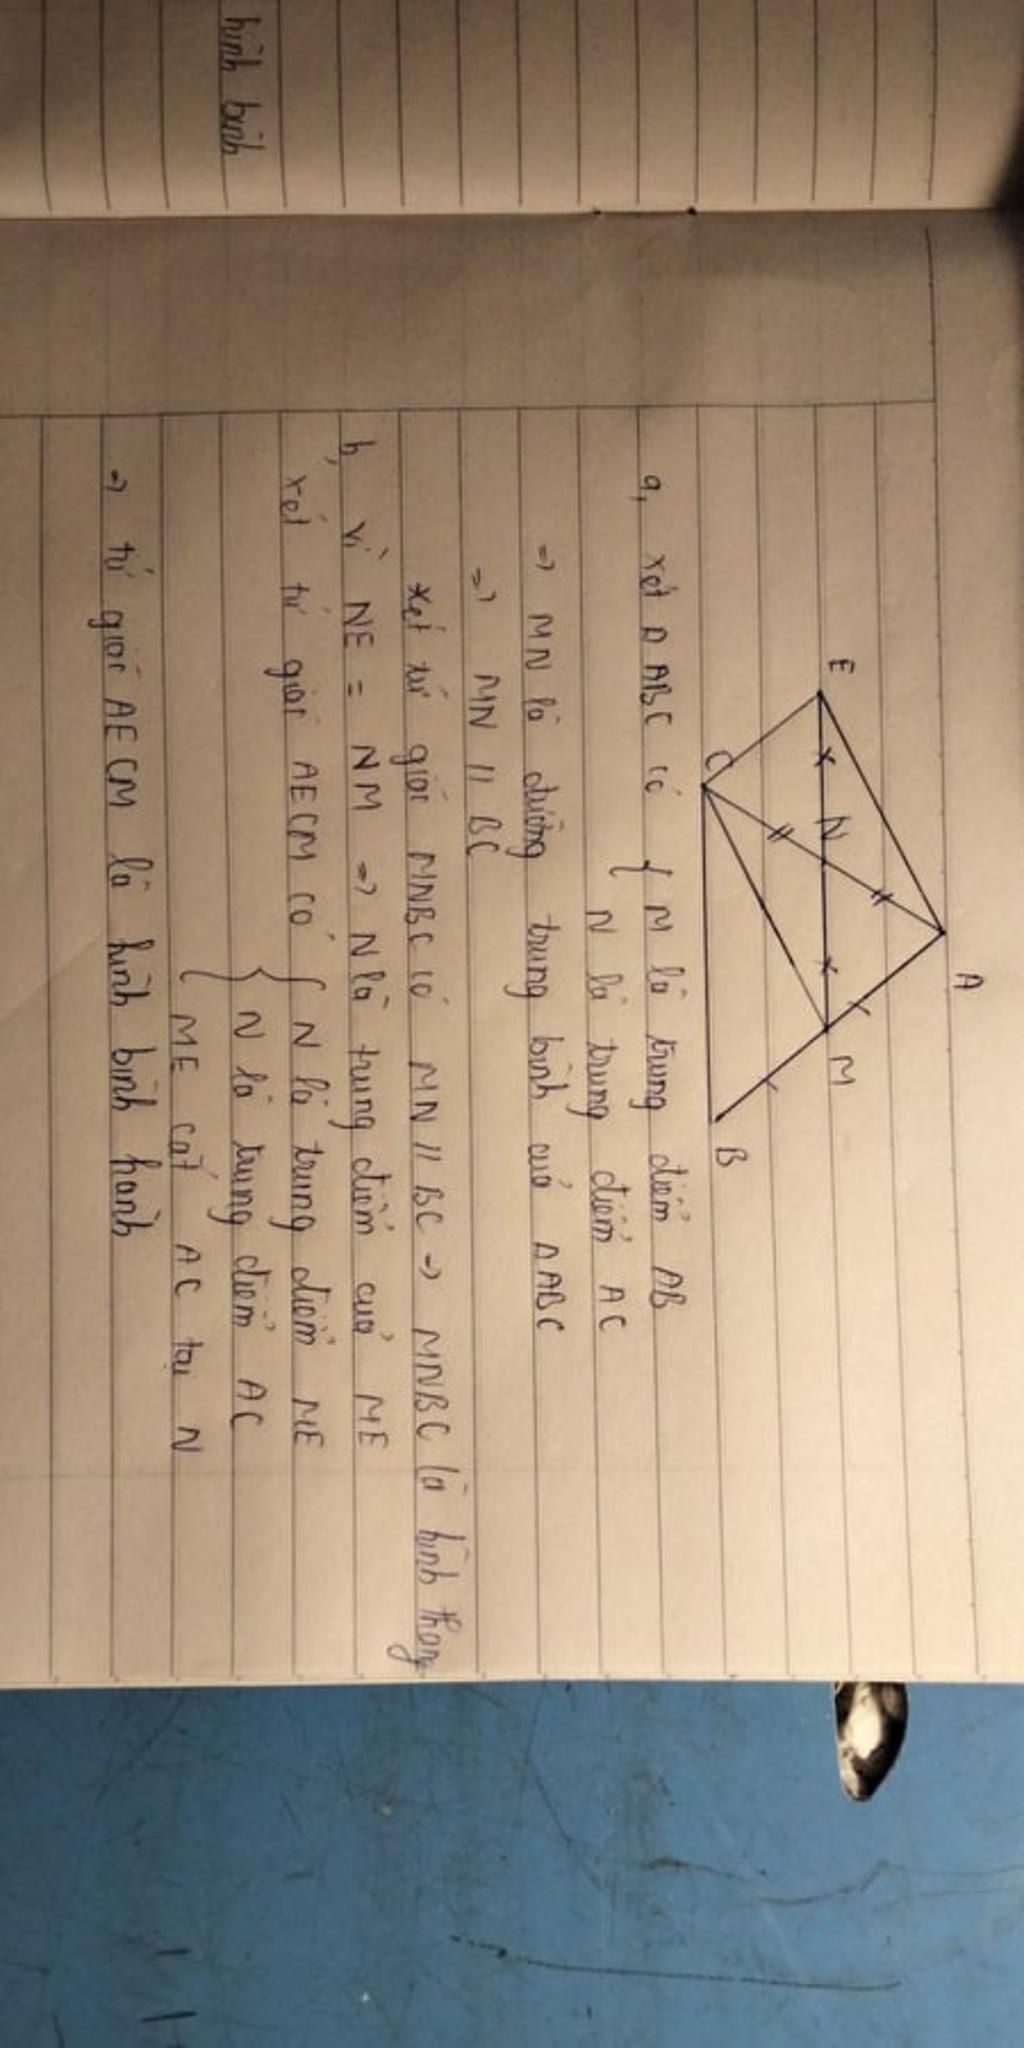 hình bình
A
E
N
M
C
B
a, xét Δ ABC có { M là trung điểm AB
N là trung điểm AC
=> MN là đường trung bình của ΔABC
=> MN // BC
xét tứ giác MNBC có MN // BC -> MNBC là hình thang
b, vì NE = NM => N là trung điểm của ME
xét tứ giác AECM có { N là trung điểm ME
N là trung điểm AC
ME cắt AC tại N
=> tứ giác AECM là hình bình hành